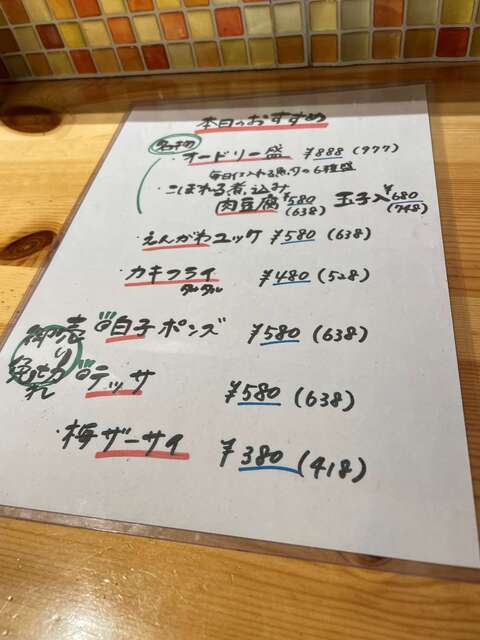 本日のおすすめ
名物
・オードリー盛 ¥888 (977)
毎日仕入れる魚の6種盛
・こぼれる煮込み
肉豆腐 ¥580 (638) 玉子入 ¥680 (748)
・えんがわユッケ ¥580 (638)
・カキフライ ¥480 (528)
タルタル
白子ポンズ ¥580 (638)
売り切れ
テッサ ¥580 (638)
・梅ザーサイ ¥380 (418)